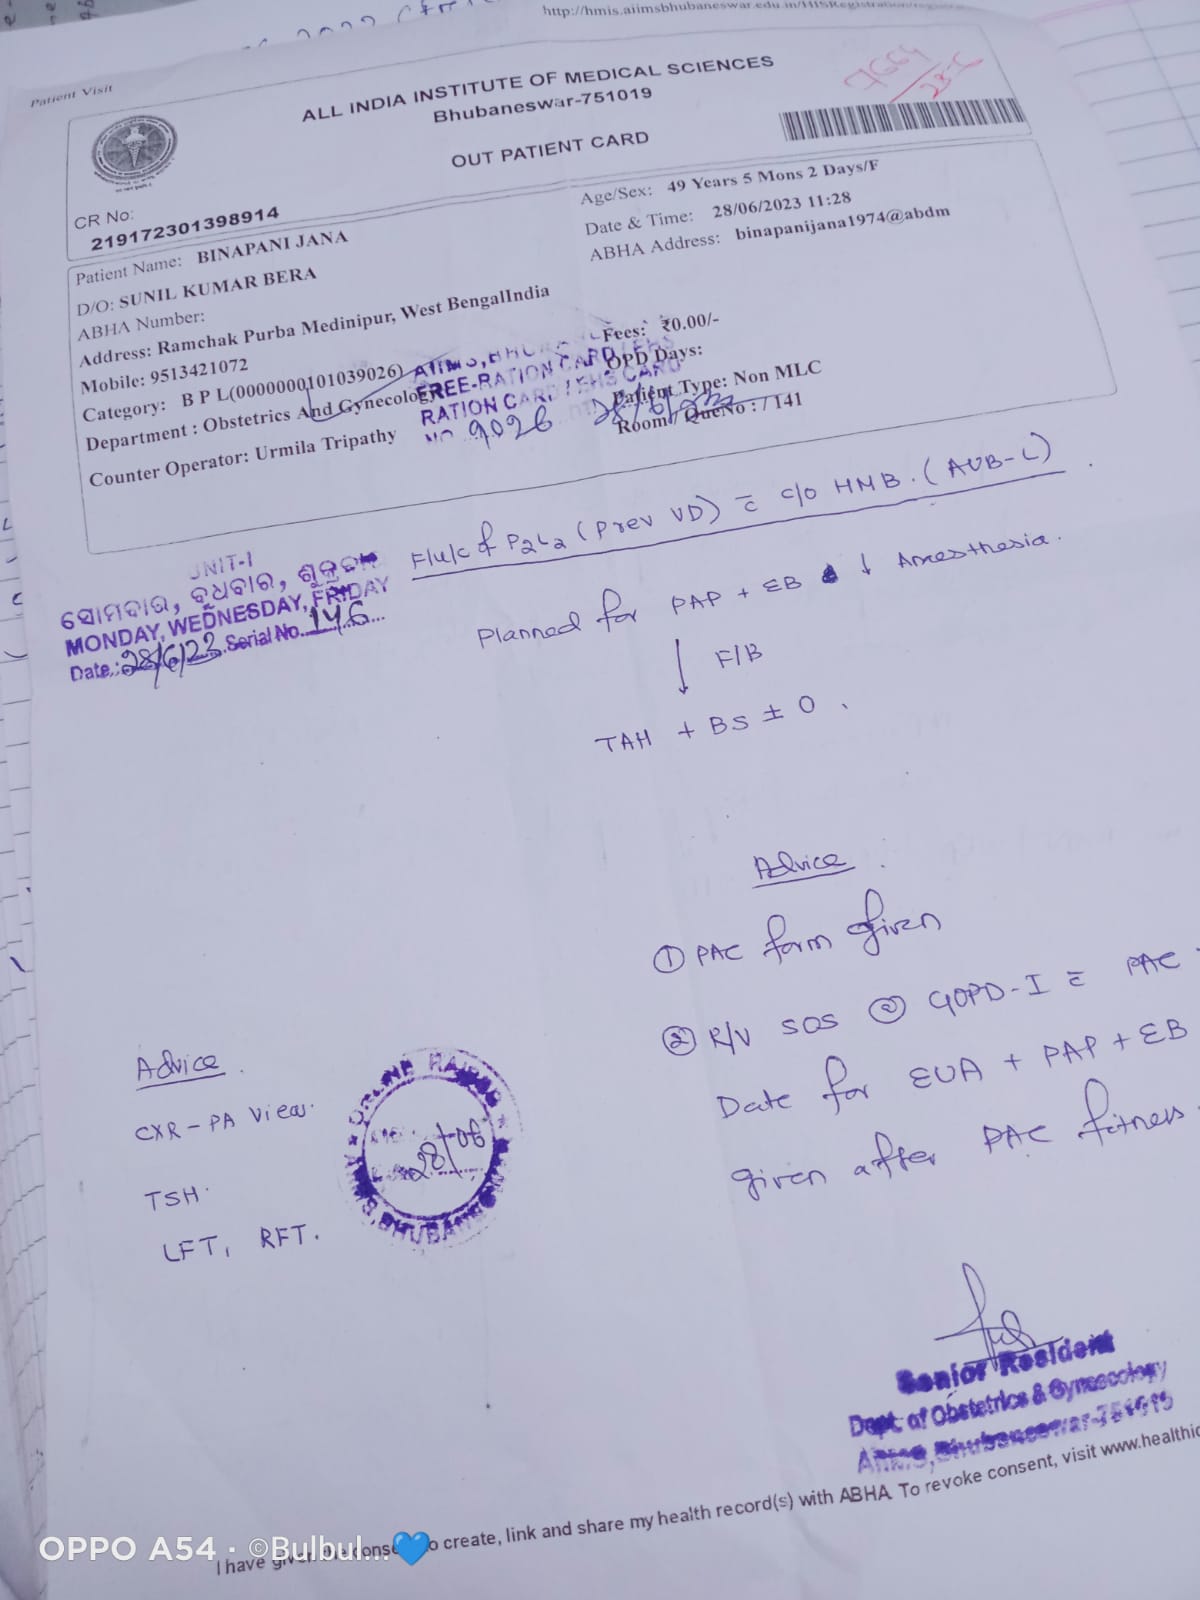 http://hmis.aiimsbhubaneswar.edu.in/HISRegistration/
Patient Visit
ALL INDIA INSTITUTE OF MEDICAL SCIENCES
Bhubaneswar-751019
OUT PATIENT CARD
7664
28-6
CR No:
219172301398914
Patient Name: BINAPANI JANA
D/O: SUNIL KUMAR BERA
ABHA Number:
Address: Ramchak Purba Medinipur, West BengalIndia
Mobile: 9513421072
Category: B P L(0000000101039026)
Department : Obstetrics And Gynecology
Counter Operator: Urmila Tripathy
Age/Sex: 49 Years 5 Mons 2 Days/F
Date & Time: 28/06/2023 11:28
ABHA Address: binapanijana1974@abdm
Fees: ₹0.00/-
OPD Days:
Patient Type: Non MLC
Room/ QueNo : / 141
FREE-RATION CARD / EHS
RATION CARD / EHS CARD
9026
UNIT-I
ସୋମବାର, ବୁଧବାର, ଶୁକ୍ରବାର
MONDAY, WEDNESDAY, FRIDAY
Date.:28/6/23 Serial No. 146
F/u/c of P2L2 (Prev VD) c̄ c/o HMB. (AUB-L)
Planned for PAP + EB ↓ Anesthesia.
↓ F/B
TAH + BS ± O.
Advice
① PAC form given
② R/V SOS @ GOPD-I c̄ PAC
Date for EUA + PAP + EB
given after PAC fitness
Advice
CXR - PA View.
TSH.
LFT, RFT.
28/06
Senior Resident
Dept. of Obstetrics & Gynaecology
AIIMS, Bhubaneswar-751019
I have given the consent to create, link and share my health record(s) with ABHA. To revoke consent, visit www.healthid
OPPO A54 · ©Bulbul...💙